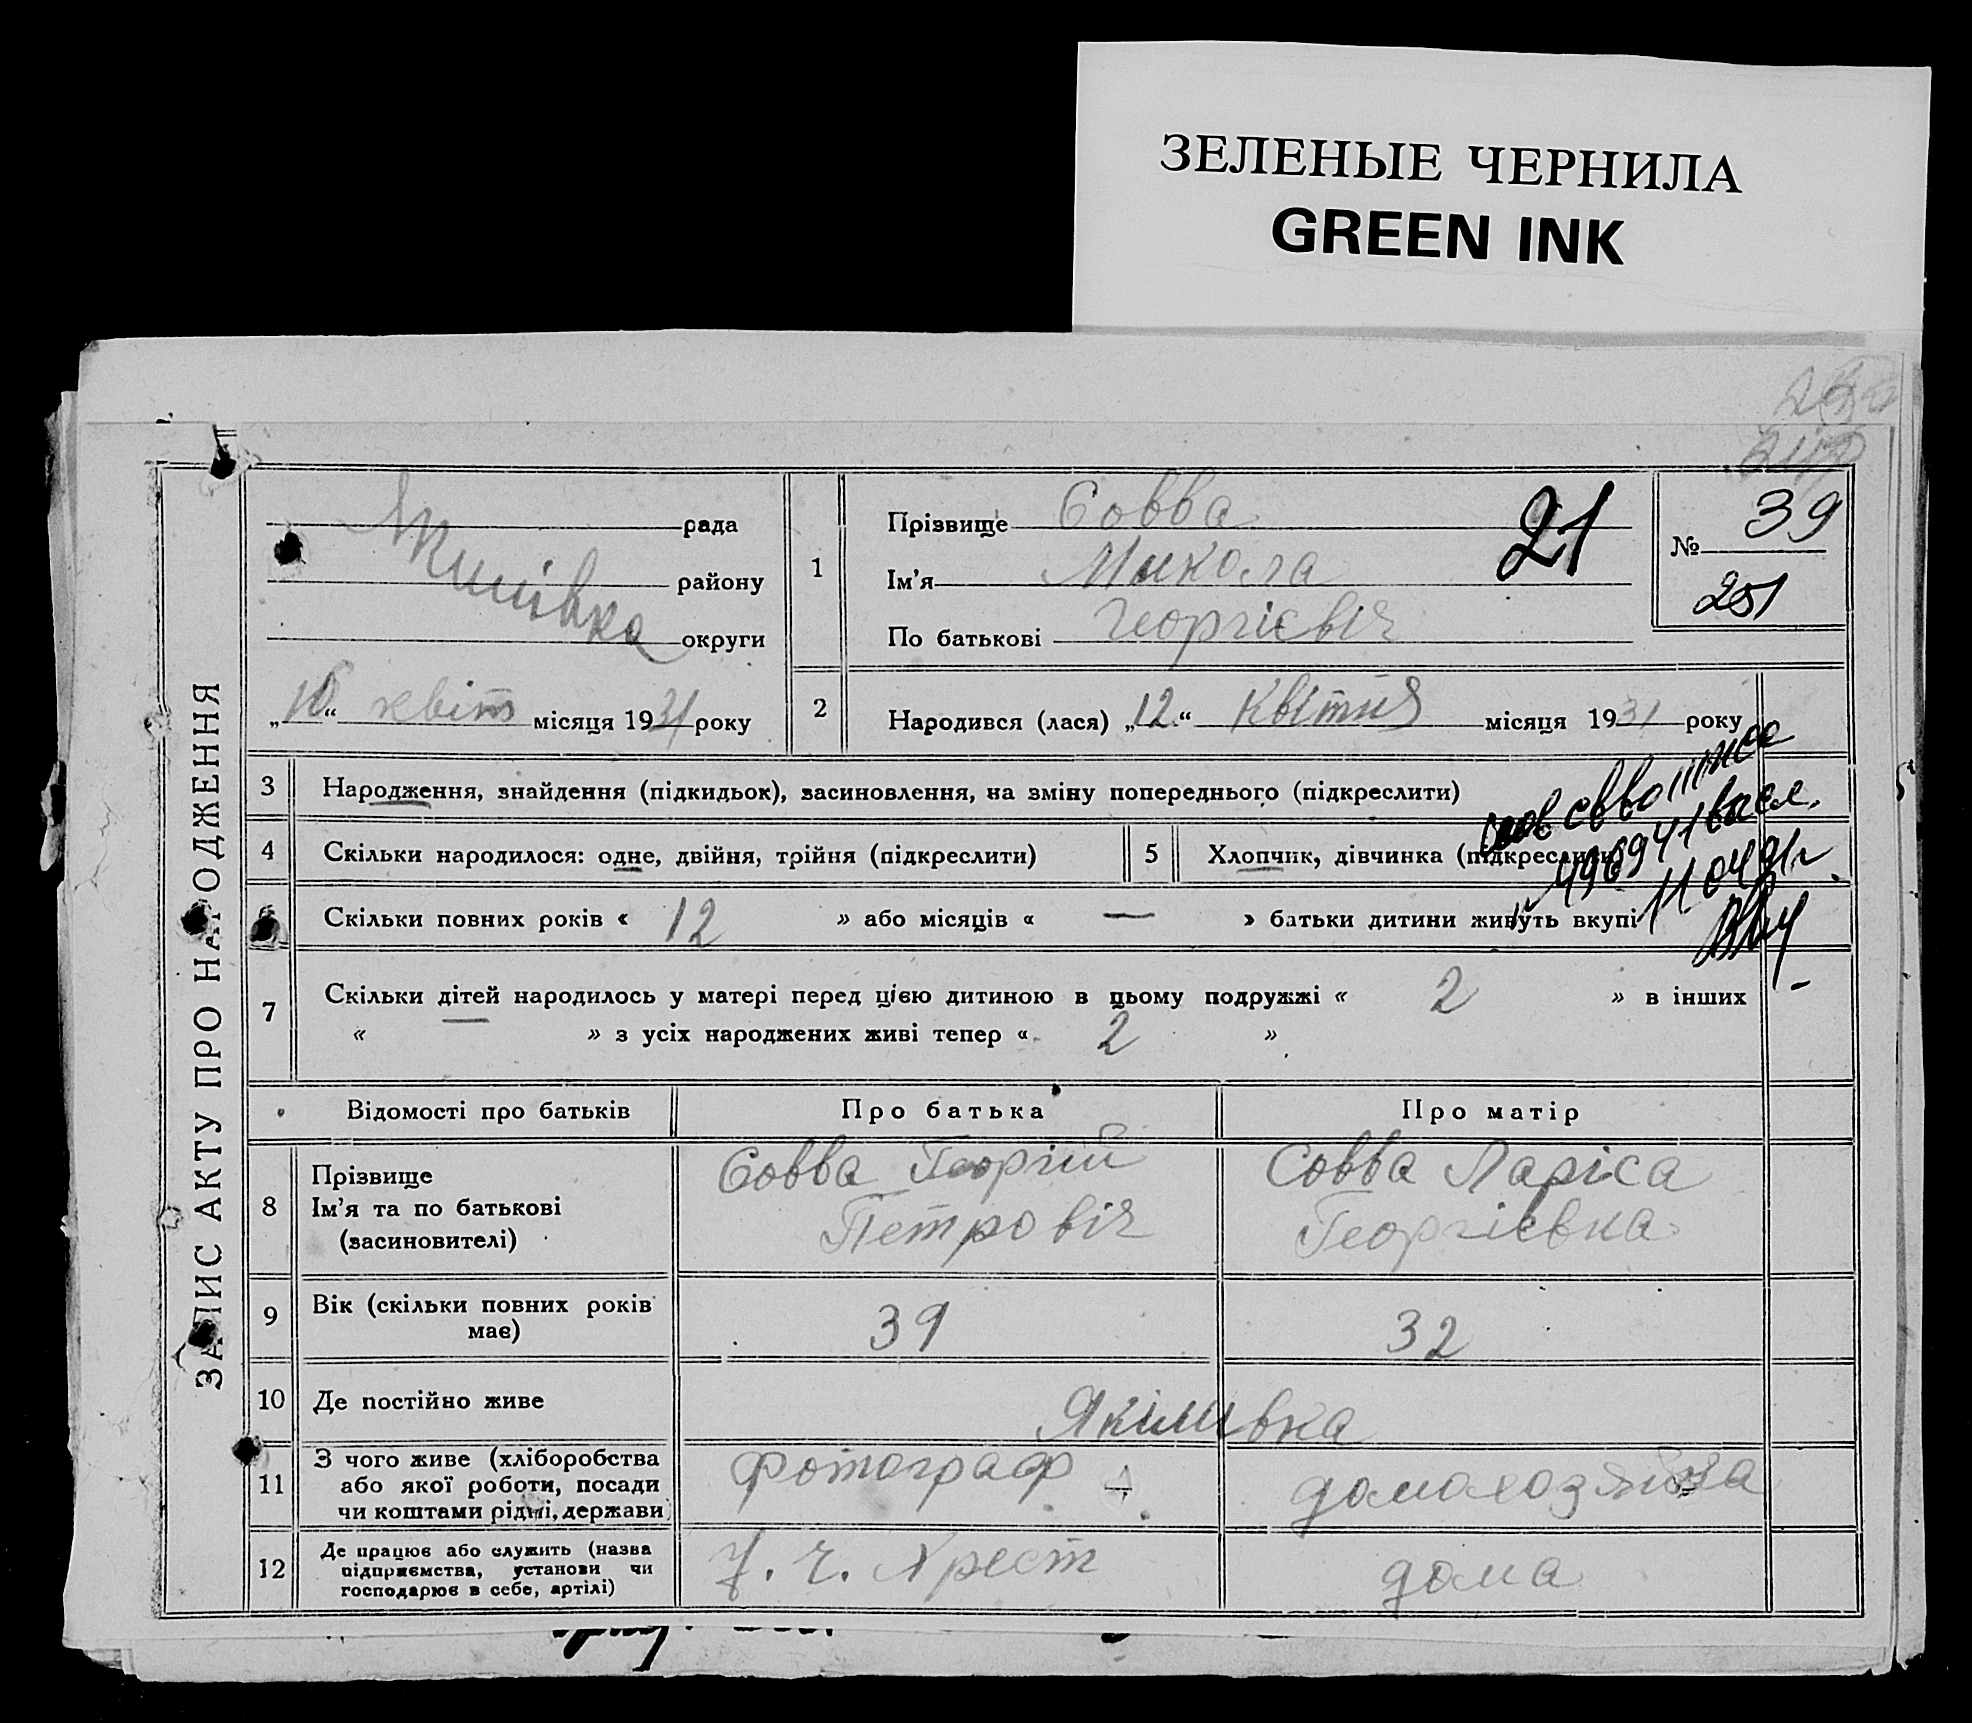 ЗЕЛЕНЫЕ ЧЕРНИЛА
GREEN INK
ЗАПИС АКТУ ПРО НАРОДЖЕННЯ
рада
району
округи
Якимівка
„ “ квітн місяця 1931 року
1
Прізвище Совва
Ім'я Микола
По батькові Георгієвіч
21
№ 39
251
2
Народився (лася) „12“ Квітня місяця 1931 року
3
Народження, знайдення (підкидьок), засиновлення, на зміну попереднього (підкреслити)
4
Скільки народилося: одне, двійня, трійня (підкреслити)
5
Хлопчик, дівчинка (підкреслити)
6
Скільки повних років « 12 » або місяців « — » батьки дитини живуть вкупі
11 04 91г
7
Скільки дітей народилось у матері перед цією дитиною в цьому подружжі « 2 » в інших
« » з усіх народжених живі тепер « 2 »
Відомості про батьків
Про батька
Про матір
8
Прізвище
Ім'я та по батькові
(засиновителі)
Совва Георгій
Петровіч
Совва Ларіса
Георгієвна
9
Вік (скільки повних років
має)
39
32
10
Де постійно живе
Якимівка
11
З чого живе (хліборобства
або якої роботи, посади
чи коштами рідні, держави
Фотограф
домохозяйка
12
Де працює або служить (назва
підприємства, установи чи
господарює в себе, артілі)
Ч. Хрест
дома